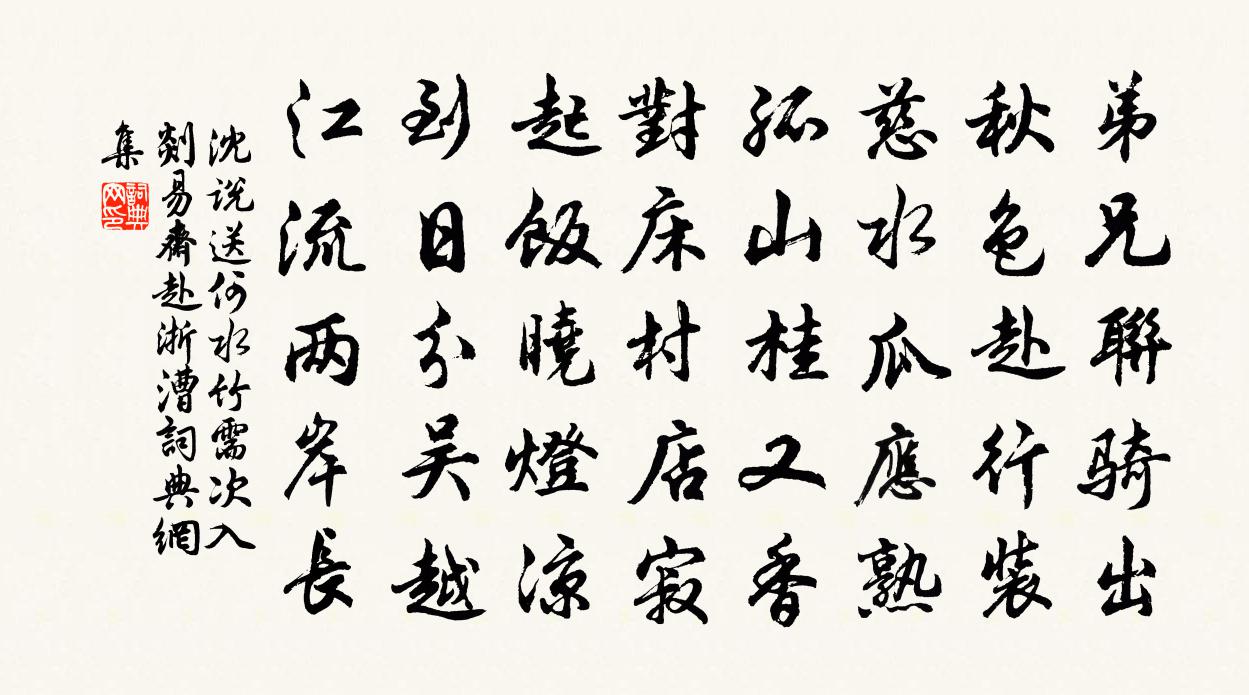 弟兄聯骑出
秋色赴行裝
慈水瓜應熟
孤山桂又香
對床村店寂
起飯曉燈涼
到日分吴越
江流两岸長
沈说送何水竹需次入
剡易齋赴浙漕詞典網
集
詞典
网印